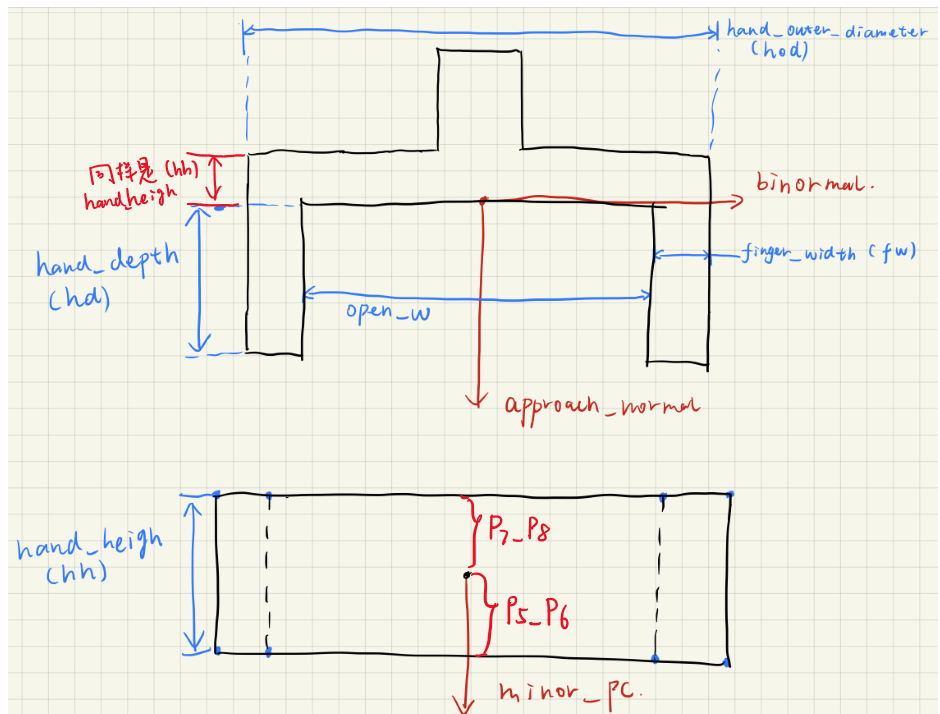 hand_outer_diameter
(hod)
同样是 (hh)
hand_heigh
binormal.
hand_depth
(hd)
finger_width (fw)
open_w
approach_normal
P7_P8
hand_heigh
(hh)
P5_P6
minor_pc.